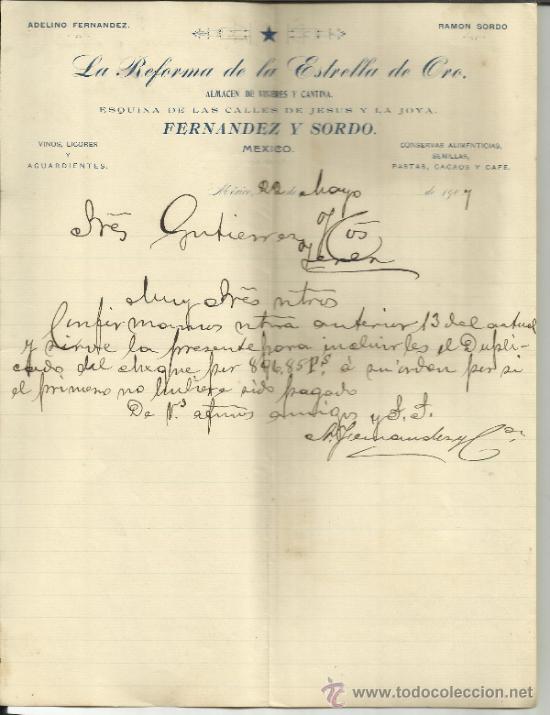 ADELINO FERNANDEZ.
RAMON SORDO
La Reforma de la Estrella de Oro.
ALMACEN DE VIVERES Y CANTINA.
ESQUINA DE LAS CALLES DE JESUS Y LA JOYA.
FERNANDEZ Y SORDO.
MEXICO.
VINOS, LICORES
Y
AGUARDIENTES.
CONSERVAS ALIMENTICIAS,
SEMILLAS,
PASTAS, CACAOS Y CAFE.
México, 22 de Mayo de 1907
Srês Gutierrez y Cos
Jerez
Muy Srês ntros
Confirmamos ntra anterior 13 del actual
y sirve la presente para incluirles el Dupli-
cado del cheque por 896,85 Ps á su orden por si
el primero no hubiere sido pagado
De Vs afmos amigos y S. S.
A. Fernandez y Ca
todocoleccion
www.todocoleccion.net